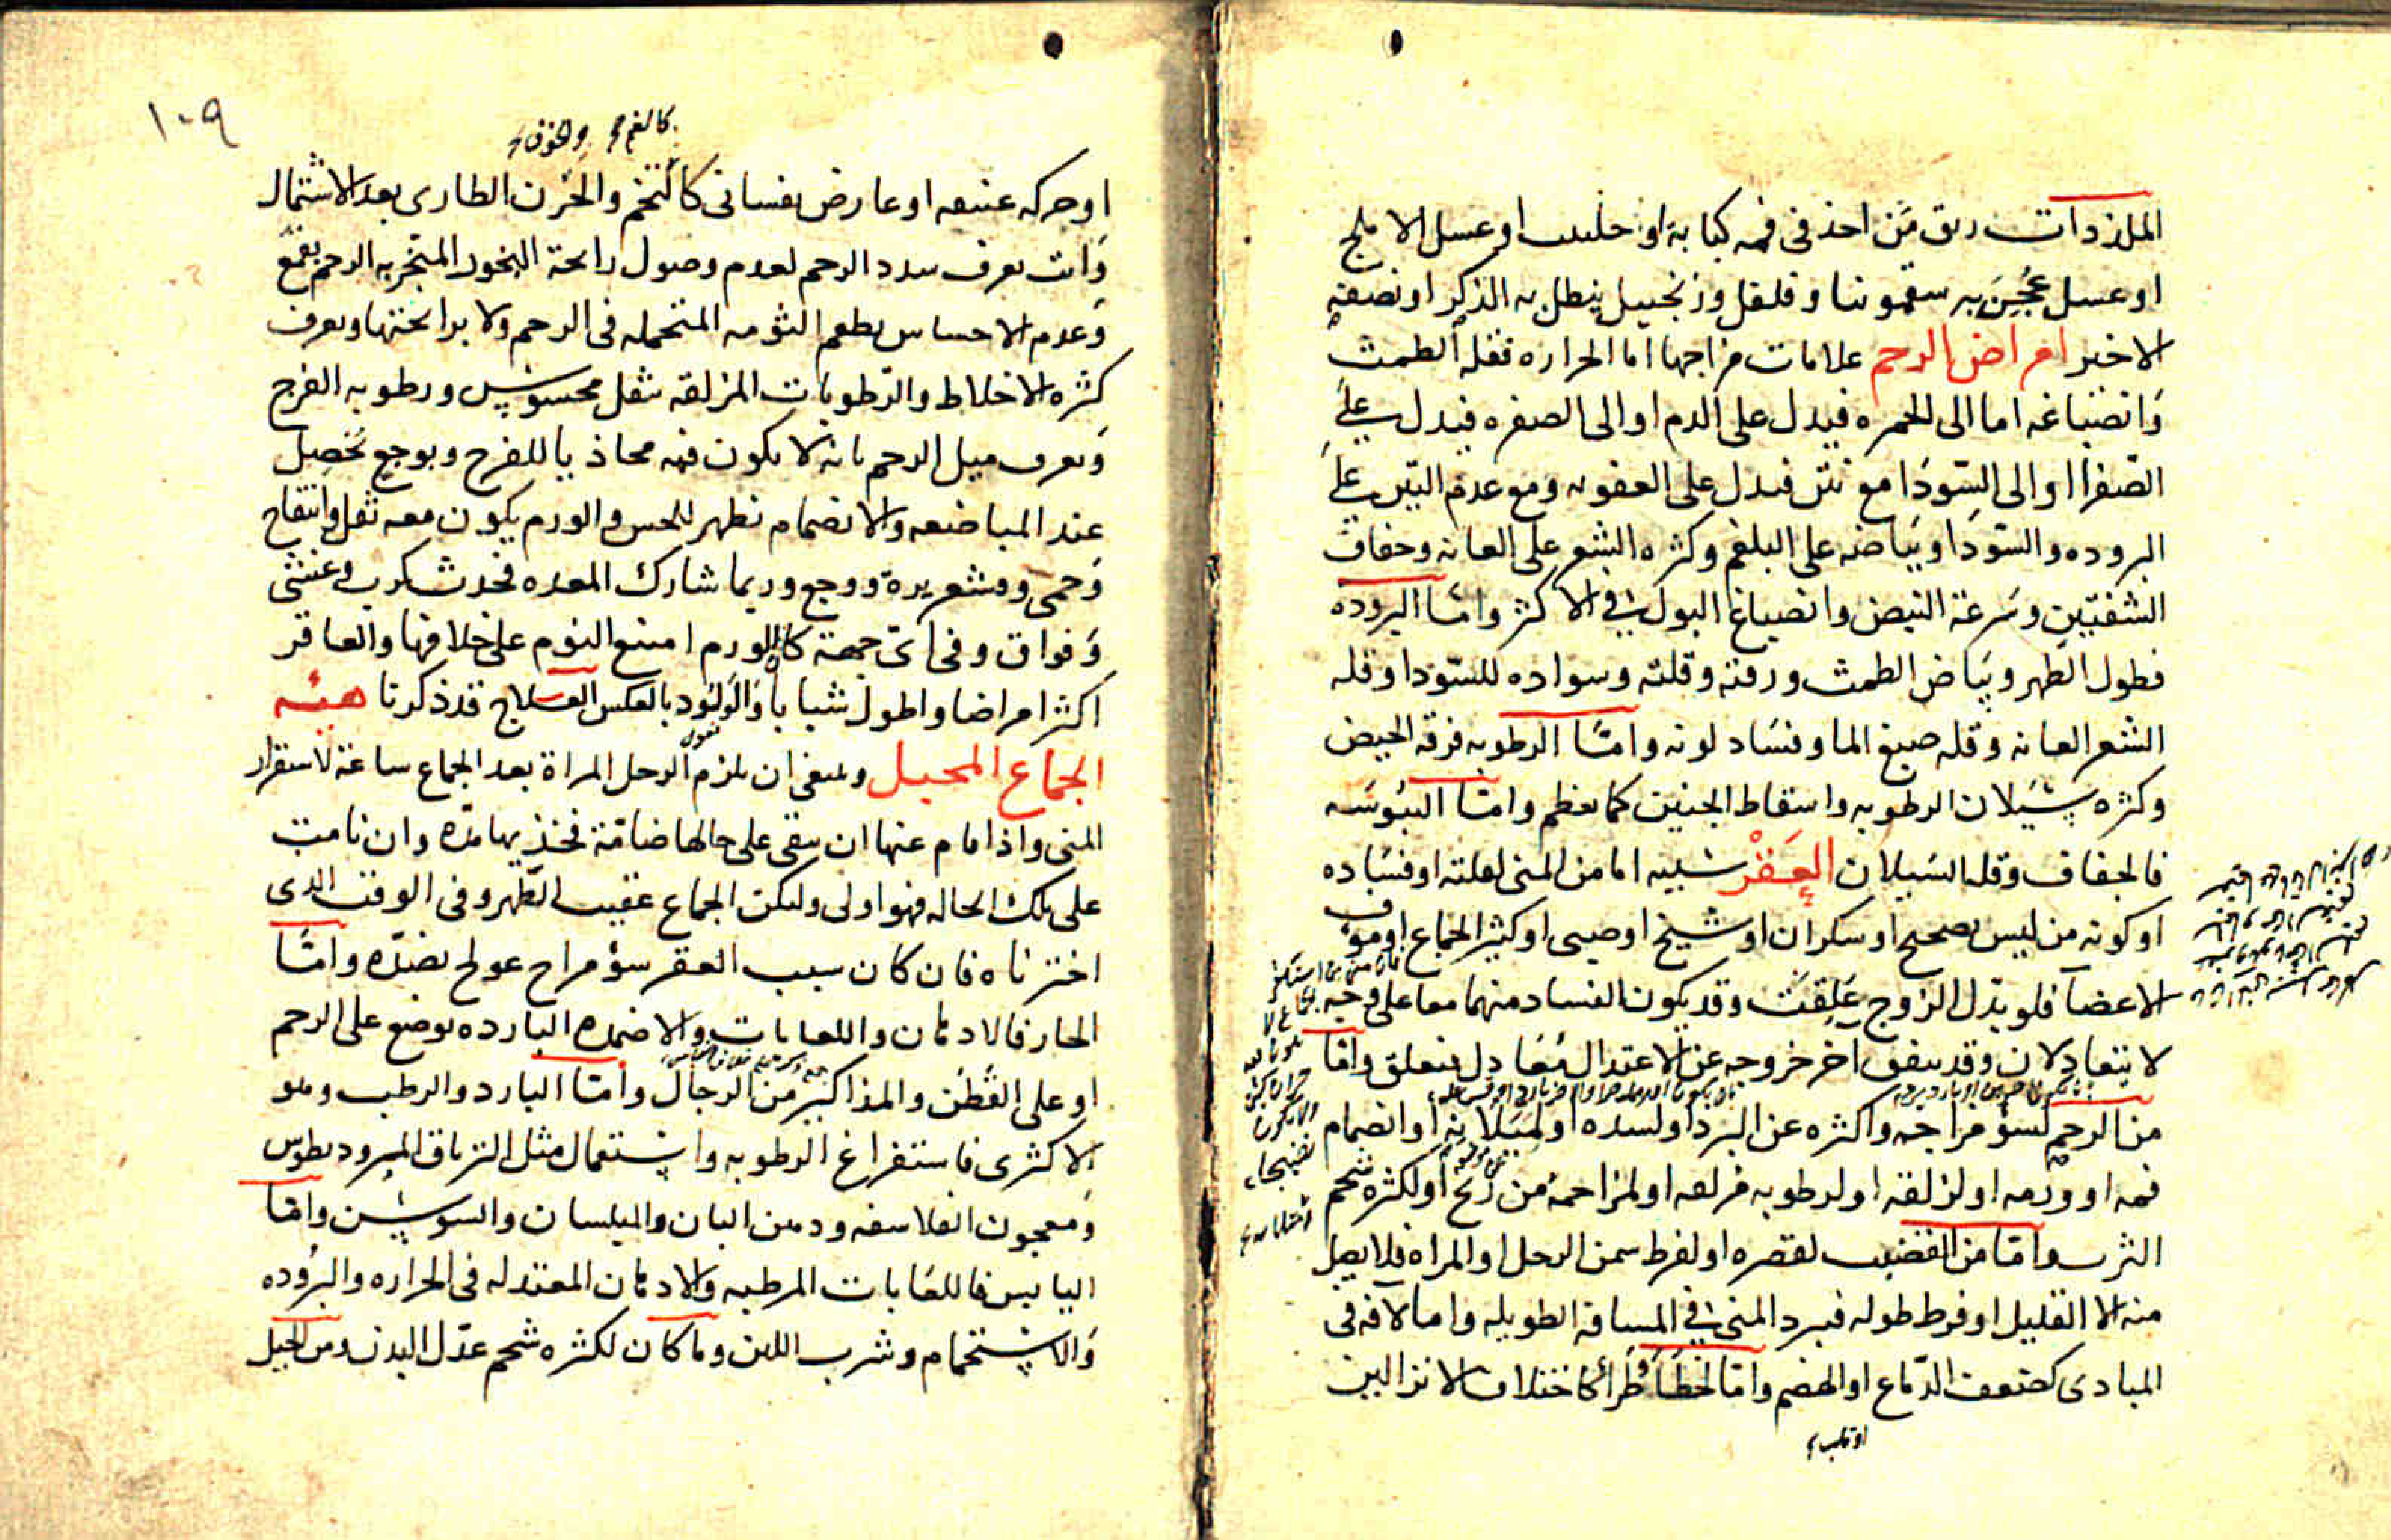 الملذذات ريق من اخذ في فمه كبابة او حلتيت او عسل الاملج
او عسل عُجِنَ به سقمونيا و فلفل وزنجبيل يطلى به الذكر او نصفه
الاخير امراض الرحم علامات مزاجها اما الحراره فقلة الطمث
وَانصباغه اما الى الحمره فيدل على الدم او الى الصفره فيدل على
الصّفرا او الى السّودا مع نتن فيدل على العفونه ومع عدم النتن على
البروده والسّودا وبَياضه على البلغم وكثره الشعر على العانه وجفاف
الشفتين وسَرعة النبض وانصباغ البول في الاكثر وامّا البروده
فطول الطّهر وبَياض الطمث ورقته وقلته وسواده للسّودا وقله
الشعر العانه وقله صبغ الما وفسَاد لونه وامّا الرطوبه فرقه الحيض
وكثره سَيَلان الرطوبه واسقاط الجنين كما يعظم وامّا اليبُوسَه
فالجفاف وقله السَيلان العَقْر سببه اما من المنى لعلته او فسَاده
او كونه من ليس بصحيح او سكران او شيخ او صبى او كثير الجماع او موف
الاعضآ فلو بدّل الزوج عَلِقَت وقد يكون الفساد منهما معا على وجه
لا يتعادلان وقد يتفق اخر خروجه عن الاعتدال مُعَادل فيتعلق وامّا
من الرحم لسؤ مزاجه واكثره عن البرد او لسده او لميَلانه او انضمام
فمه او ورمه او لزلقه او لرطوبه مزلقه او لمزاحمةٍ من ريح او لكثره شحم
الثرب وامّا من القضيب لقصره او لفرط سمن الرجل او المراه فلا يصل
منه الا القليل او فرط طوله فيبرد المنى في المسافه الطويله واما لآفه فى
المبادى كضعف الدّماغ او الهضم وامّا لخطَأ طَرأ كاختلاف الانزالين
او قلب
١٠٩
كالغم والخوف
او حركه عنيفه او عارض نفسانى كالتخم والحزن الطارى بعد الاشتمال
وَانت تعرف سدد الرحم لعدم وصول رائحة البخور المتبخر به الرحم بقمع
وَعدم الاحساس بطعم الثومه المتحمله فى الرحم ولا برائحتها وتعرف
كثره الاخلاط والرّطوبَات المزلقه بثقل محسوس ورطوبه الفرج
وَتعرف ميل الرحم بانه لا يكون فمه محاذيا للفرج وبوجع يحَصِل
عند المباضعه والانضمام يظهر للحس والورم يكون معه ثقل وانتفاخ
وَحمى وقشعريرة ووجع وربما شارك المعده فحدث كرب وغشى
وَفواق وفى اىّ جهة كان الورم امتنع النوم على خلافها والعاقر
اكثر امراضا واطول شبابا وَالوَلُود بالعكس العــلاج قد ذكرنا هيئه
الجماع المحبل وينبغى ان يلزم الرجل المراة بعد الجماع ساعة لاستقرار
المنى واذا قام عنها ان تبقى على حالها ضامّة فخذيها مدّه وان نامت
على تلك الحاله فهو اولى وليكن الجماع عقيب الطّهر وفى الوقت الذى
اخترناه فان كان سبب العقر سؤ مزاج عولج بضدّه وامّا
الحار فالادهان واللعابات والاضمده البارده توضع على الرحم
او على القَطَن والمذاكير من الرجال وامّا البارد والرطب وهو
الاكثرى فاستفراغ الرطوبه واستعمال مثل الترياق المبرود يطوس
وَمعجون الفلاسفه ودهن البان والبلسان والسوسن وامّا
اليابس فاللعَابات المرطبه والادهان المعتدله فى الحراره والبرُوده
وَالاستحمام وشرب اللبن وما كان لكثره شحم عدّل البدن ومن الحيل